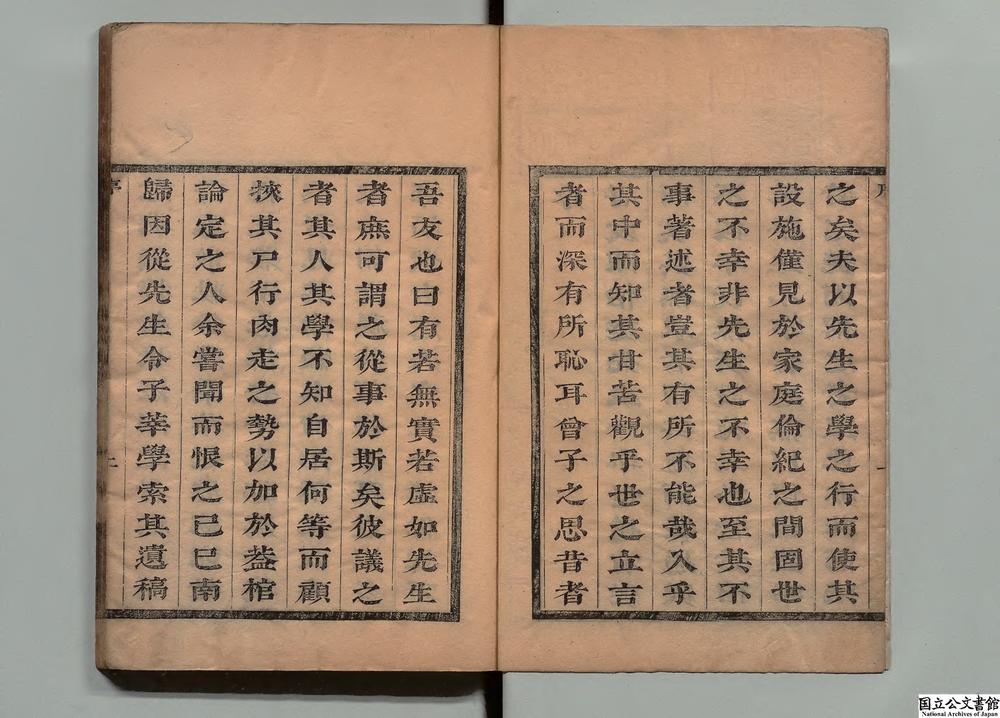 之矣夫以先生之學之行而使其
設施僅見於家庭倫紀之間固世
之不幸非先生之不幸也至其不
事著述者豈其有所不能哉入乎
其中而知其甘苦觀乎世之立言
者而深有所恥耳曾子之思昔者
吾友也曰有若無實若虛如先生
者庶可謂之從事於斯矣彼議之
者其人其學不知自居何等而顧
挾其尸行肉走之勢以加於葢棺
論定之人余嘗聞而恨之己巳南
歸因從先生令子莘學索其遺稿
国立公文書館
National Archives of Japan